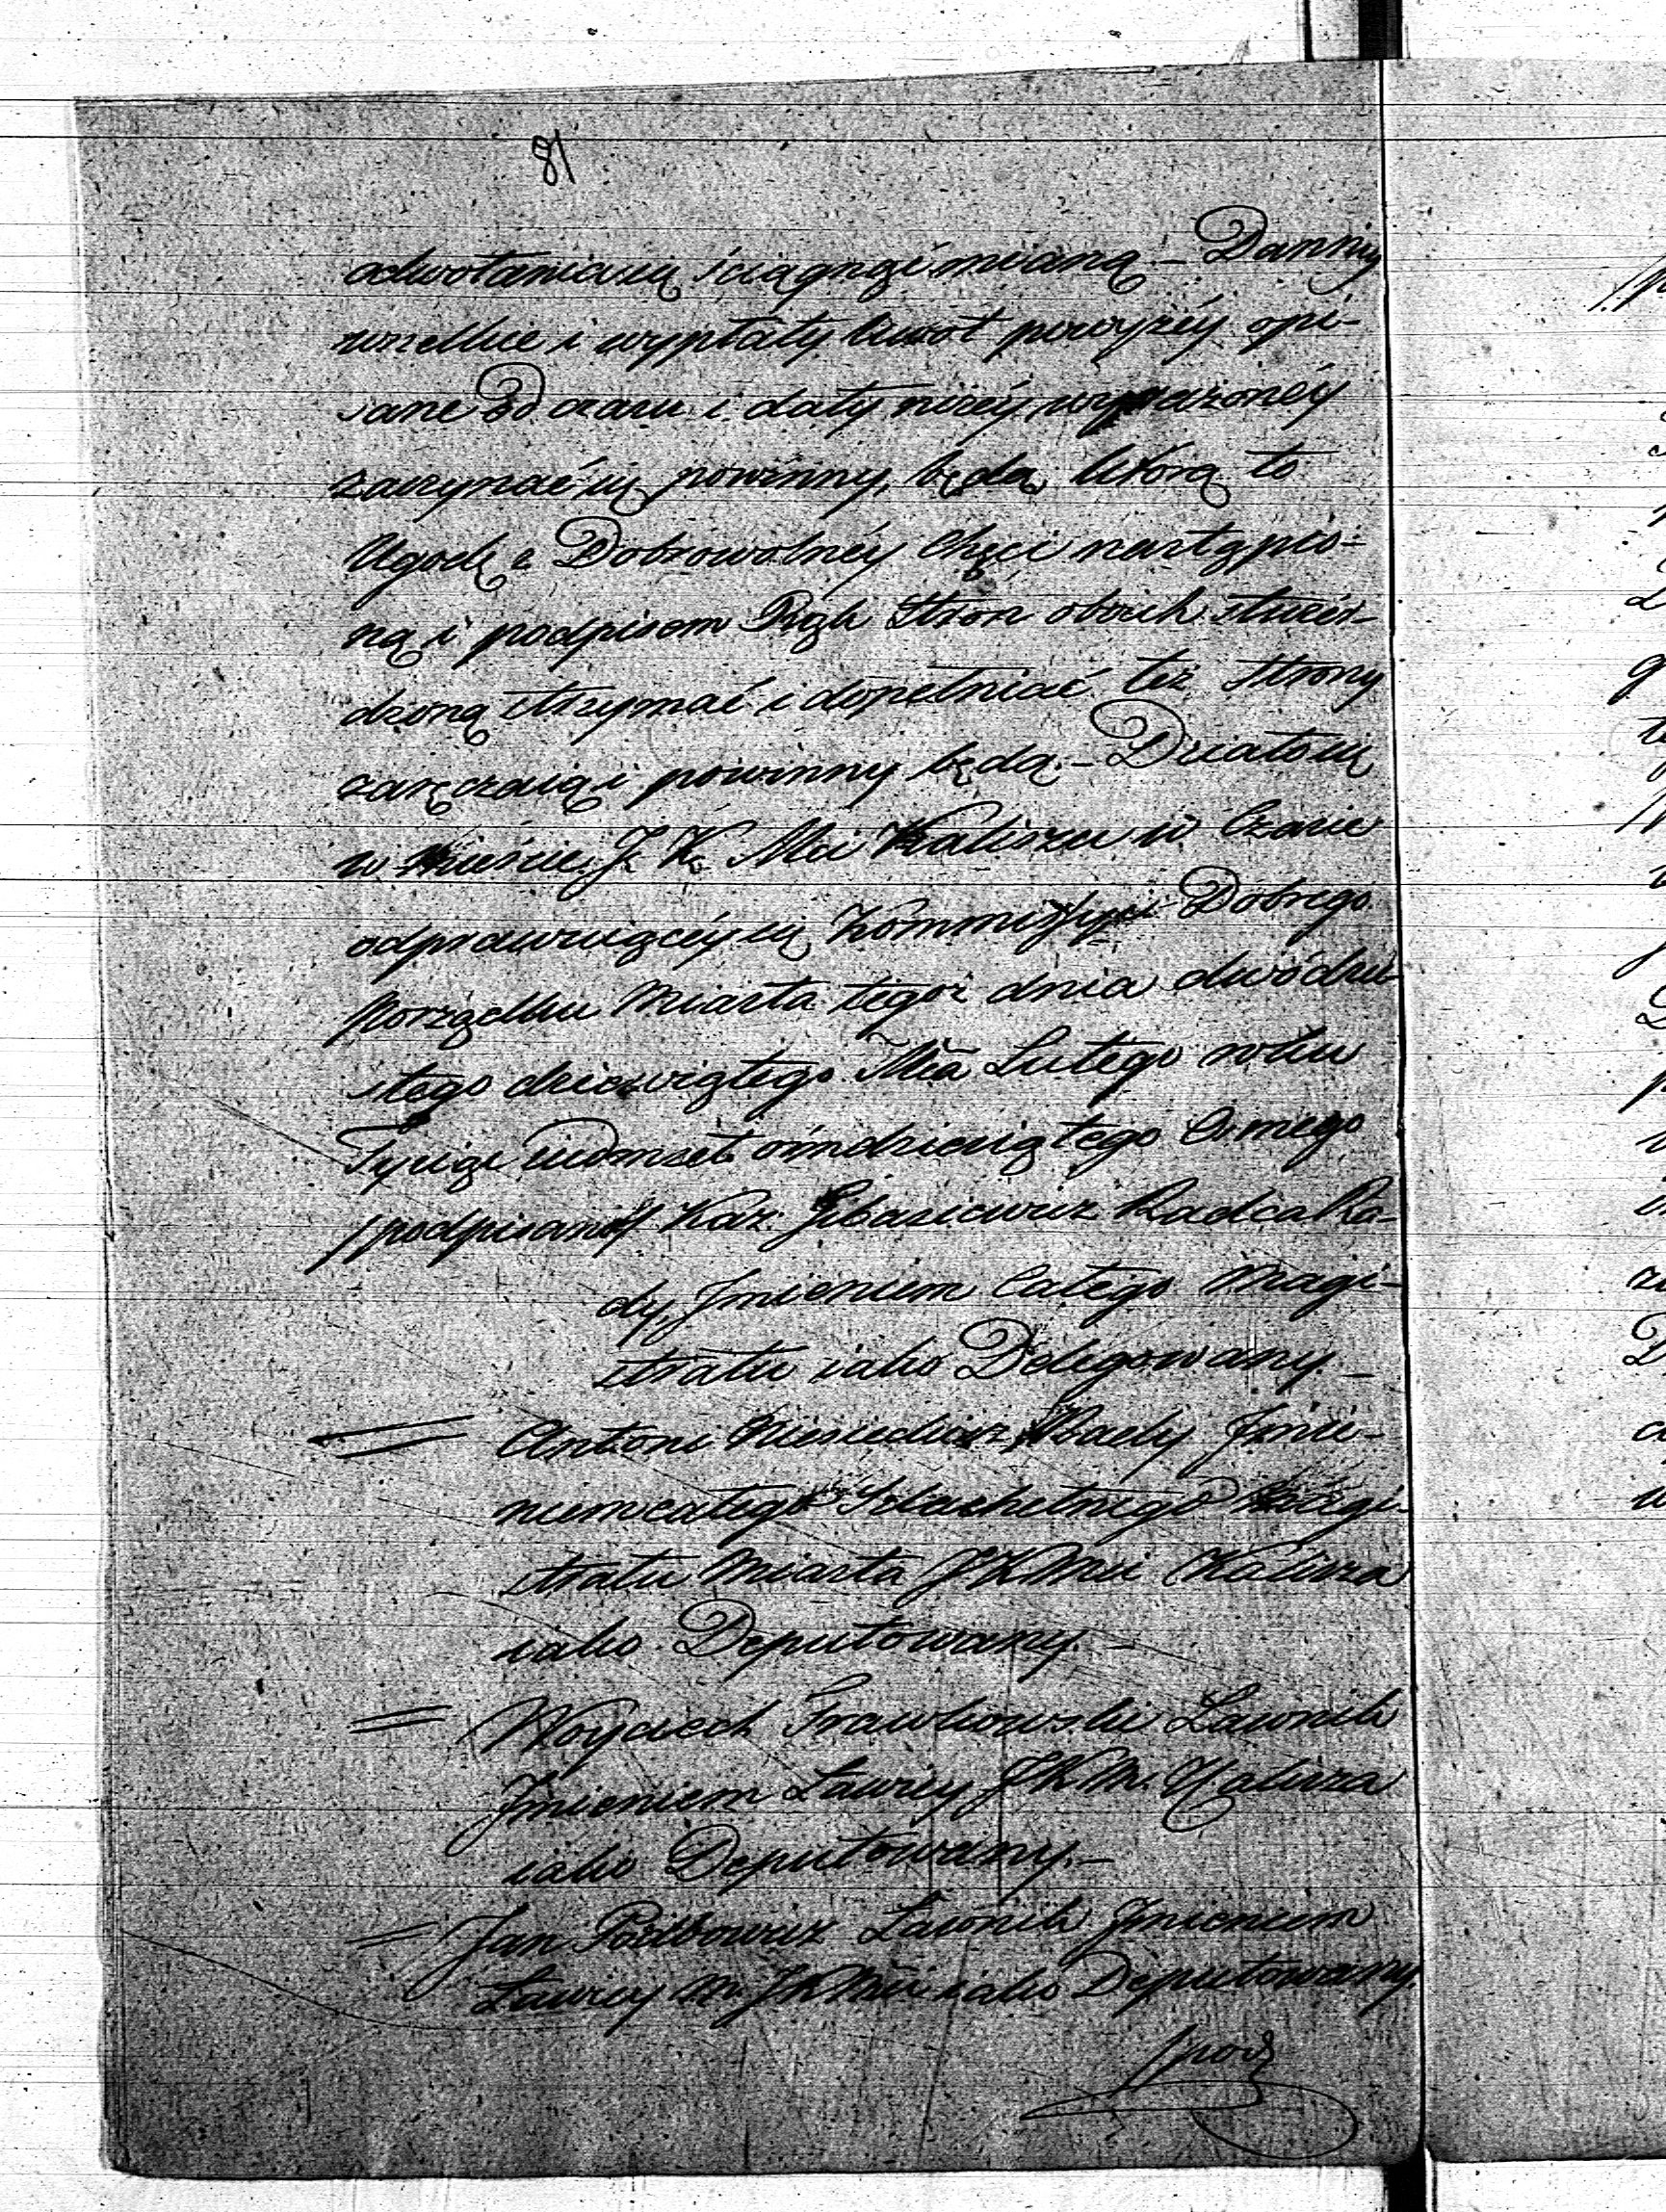 81
odwołania się ściągać mianą – Daniny
wszelkie i wypłaty kwot powyżéy opi-
sane Od czasu i daty niżéy wyrażonéy
zaczynać się powinny, będą którą to
Ugodę z Dobrowolnéy Chęci nastąpio-
ną i podpisem Rąk Stron obóch stwier-
dzoną strzymać i dopełniać też Strony
zaręczaią i powinny będą – Działo się
w Mieście J. K. Mci Kaliszu w Czasie
odprawuiącéy się Kommissyi Dobrego
porządku Miasta tegoż dnia dwódzie-
stego dziewiątego Mca Lutego roku
Tysiąc siedmset ośmdziesiątego Osmego
/podpisano/ Kaz: Gibasiewicz Radca Ra-
dy, Jmieniem Całego Magi-
stratu iako Delegowany –
= Antoni Jmie-
niem całego Szlachetnego Magi-
stratu Miasta JKMci Kalisza
iako Deputowany –
= Woyciech Frawkowski Ławnik
Jmieniem Ławicy JKM. Kalisza
iako Deputowany. –
= Jan Ławnik Jmieniem
Ławicy M. JKMci iako Deputowany